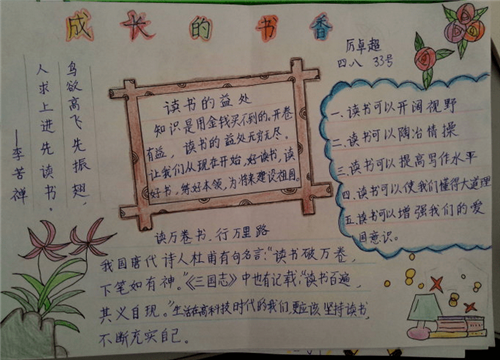 成长的书香
厉卓超
四八 33号
鸟欲高飞先振翅,
人求上进先读书。
——李苦禅
读书的益处
知识是用金钱买不到的,开卷
有益,读书的益处无穷无尽,
让我们从现在开始,好读书,读
好书。练好本领,为将来建设祖国。
一.读书可以开阔视野
二.读书可以陶冶情操
三.读书可以提高写作水平
四.读书可以使我们懂得大道理
五.读书可以增强我们的爱
国意识。
读万卷书,行万里路
我国唐代诗人杜甫有句名言:“读书破万卷,
下笔如有神。”《三国志》中也有记载:“读书百遍,
其义自现。”生活在高科技时代的我们,更应该坚持读书,
不断充实自己。